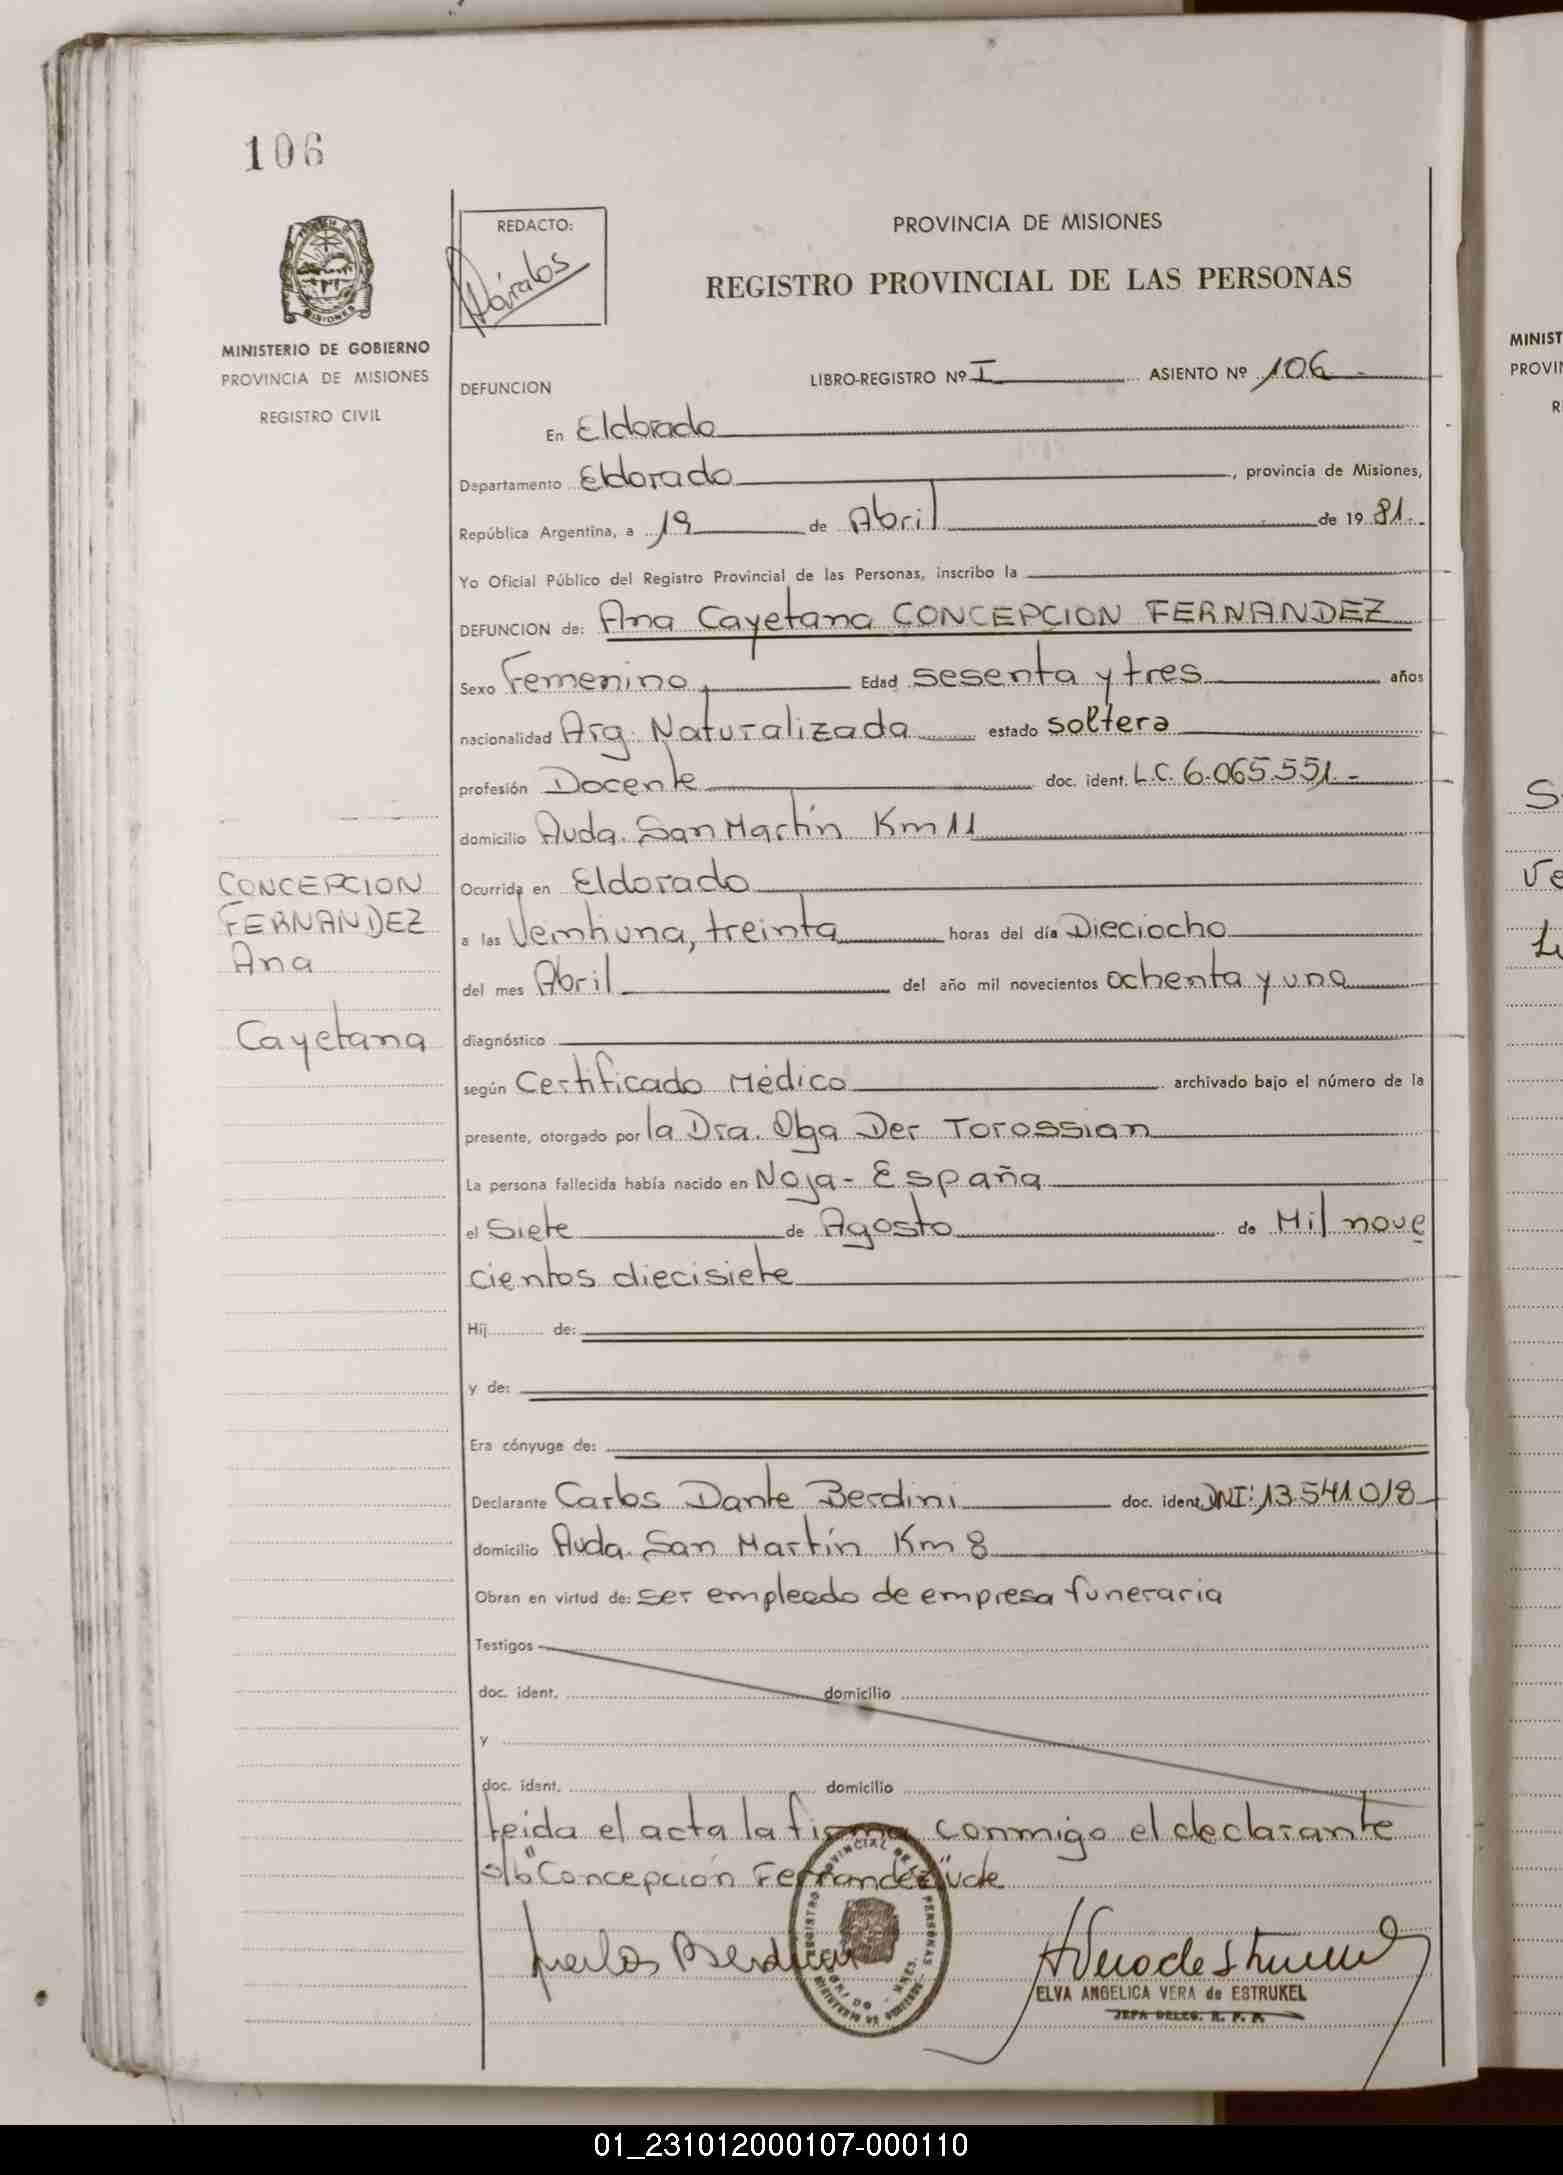 106
REDACTO:
PROVINCIA DE MISIONES
REGISTRO PROVINCIAL DE LAS PERSONAS
MISIONES
MINISTERIO DE GOBIERNO
PROVINCIA DE MISIONES
REGISTRO CIVIL
DEFUNCION LIBRO-REGISTRO Nº I ASIENTO Nº 106
En Eldorado
Departamento Eldorado, provincia de Misiones,
República Argentina, a 19 de Abril de 1981.
Yo Oficial Público del Registro Provincial de las Personas, inscribo la
DEFUNCION de: Ana Cayetana CONCEPCION FERNANDEZ
Sexo Femenino Edad sesenta y tres años
nacionalidad Arg. Naturalizada estado soltera
profesión Docente doc. ident. L.C. 6.065.551.-
domicilio Avda. San Martín Km 11
CONCEPCION
FERNANDEZ
Ana
Cayetana
Ocurrida en Eldorado
a las Veintiuna, treinta horas del día Dieciocho
del mes Abril del año mil novecientos ochenta y uno
diagnóstico
según Certificado Médico archivado bajo el número de la
presente, otorgado por la Dra. Olga Der Torossian
La persona fallecida había nacido en Noja - España
el Siete de Agosto de Mil nove
cientos diecisiete
Hij de:
y de:
Era cónyuge de:
Declarante Carlos Dante Berdini doc. ident. DNI: 13.541.018
domicilio Avda. San Martín Km 8
Obran en virtud de: ser empleado de empresa funeraria
Testigos
doc. ident. domicilio
y
doc. ident. domicilio
Leida el acta la firma conmigo el declarante
s/b "Concepción Fernandez" vale
Carlos Berdini
REGISTRO PROVINCIAL DE LAS PERSONAS
MINISTERIO DE GOBIERNO
ELVA ANGELICA VERA de ESTRUKEL
JEFA DELEG. R. P. P.
MINIST
PROVIN
R
01_231012000107-000110